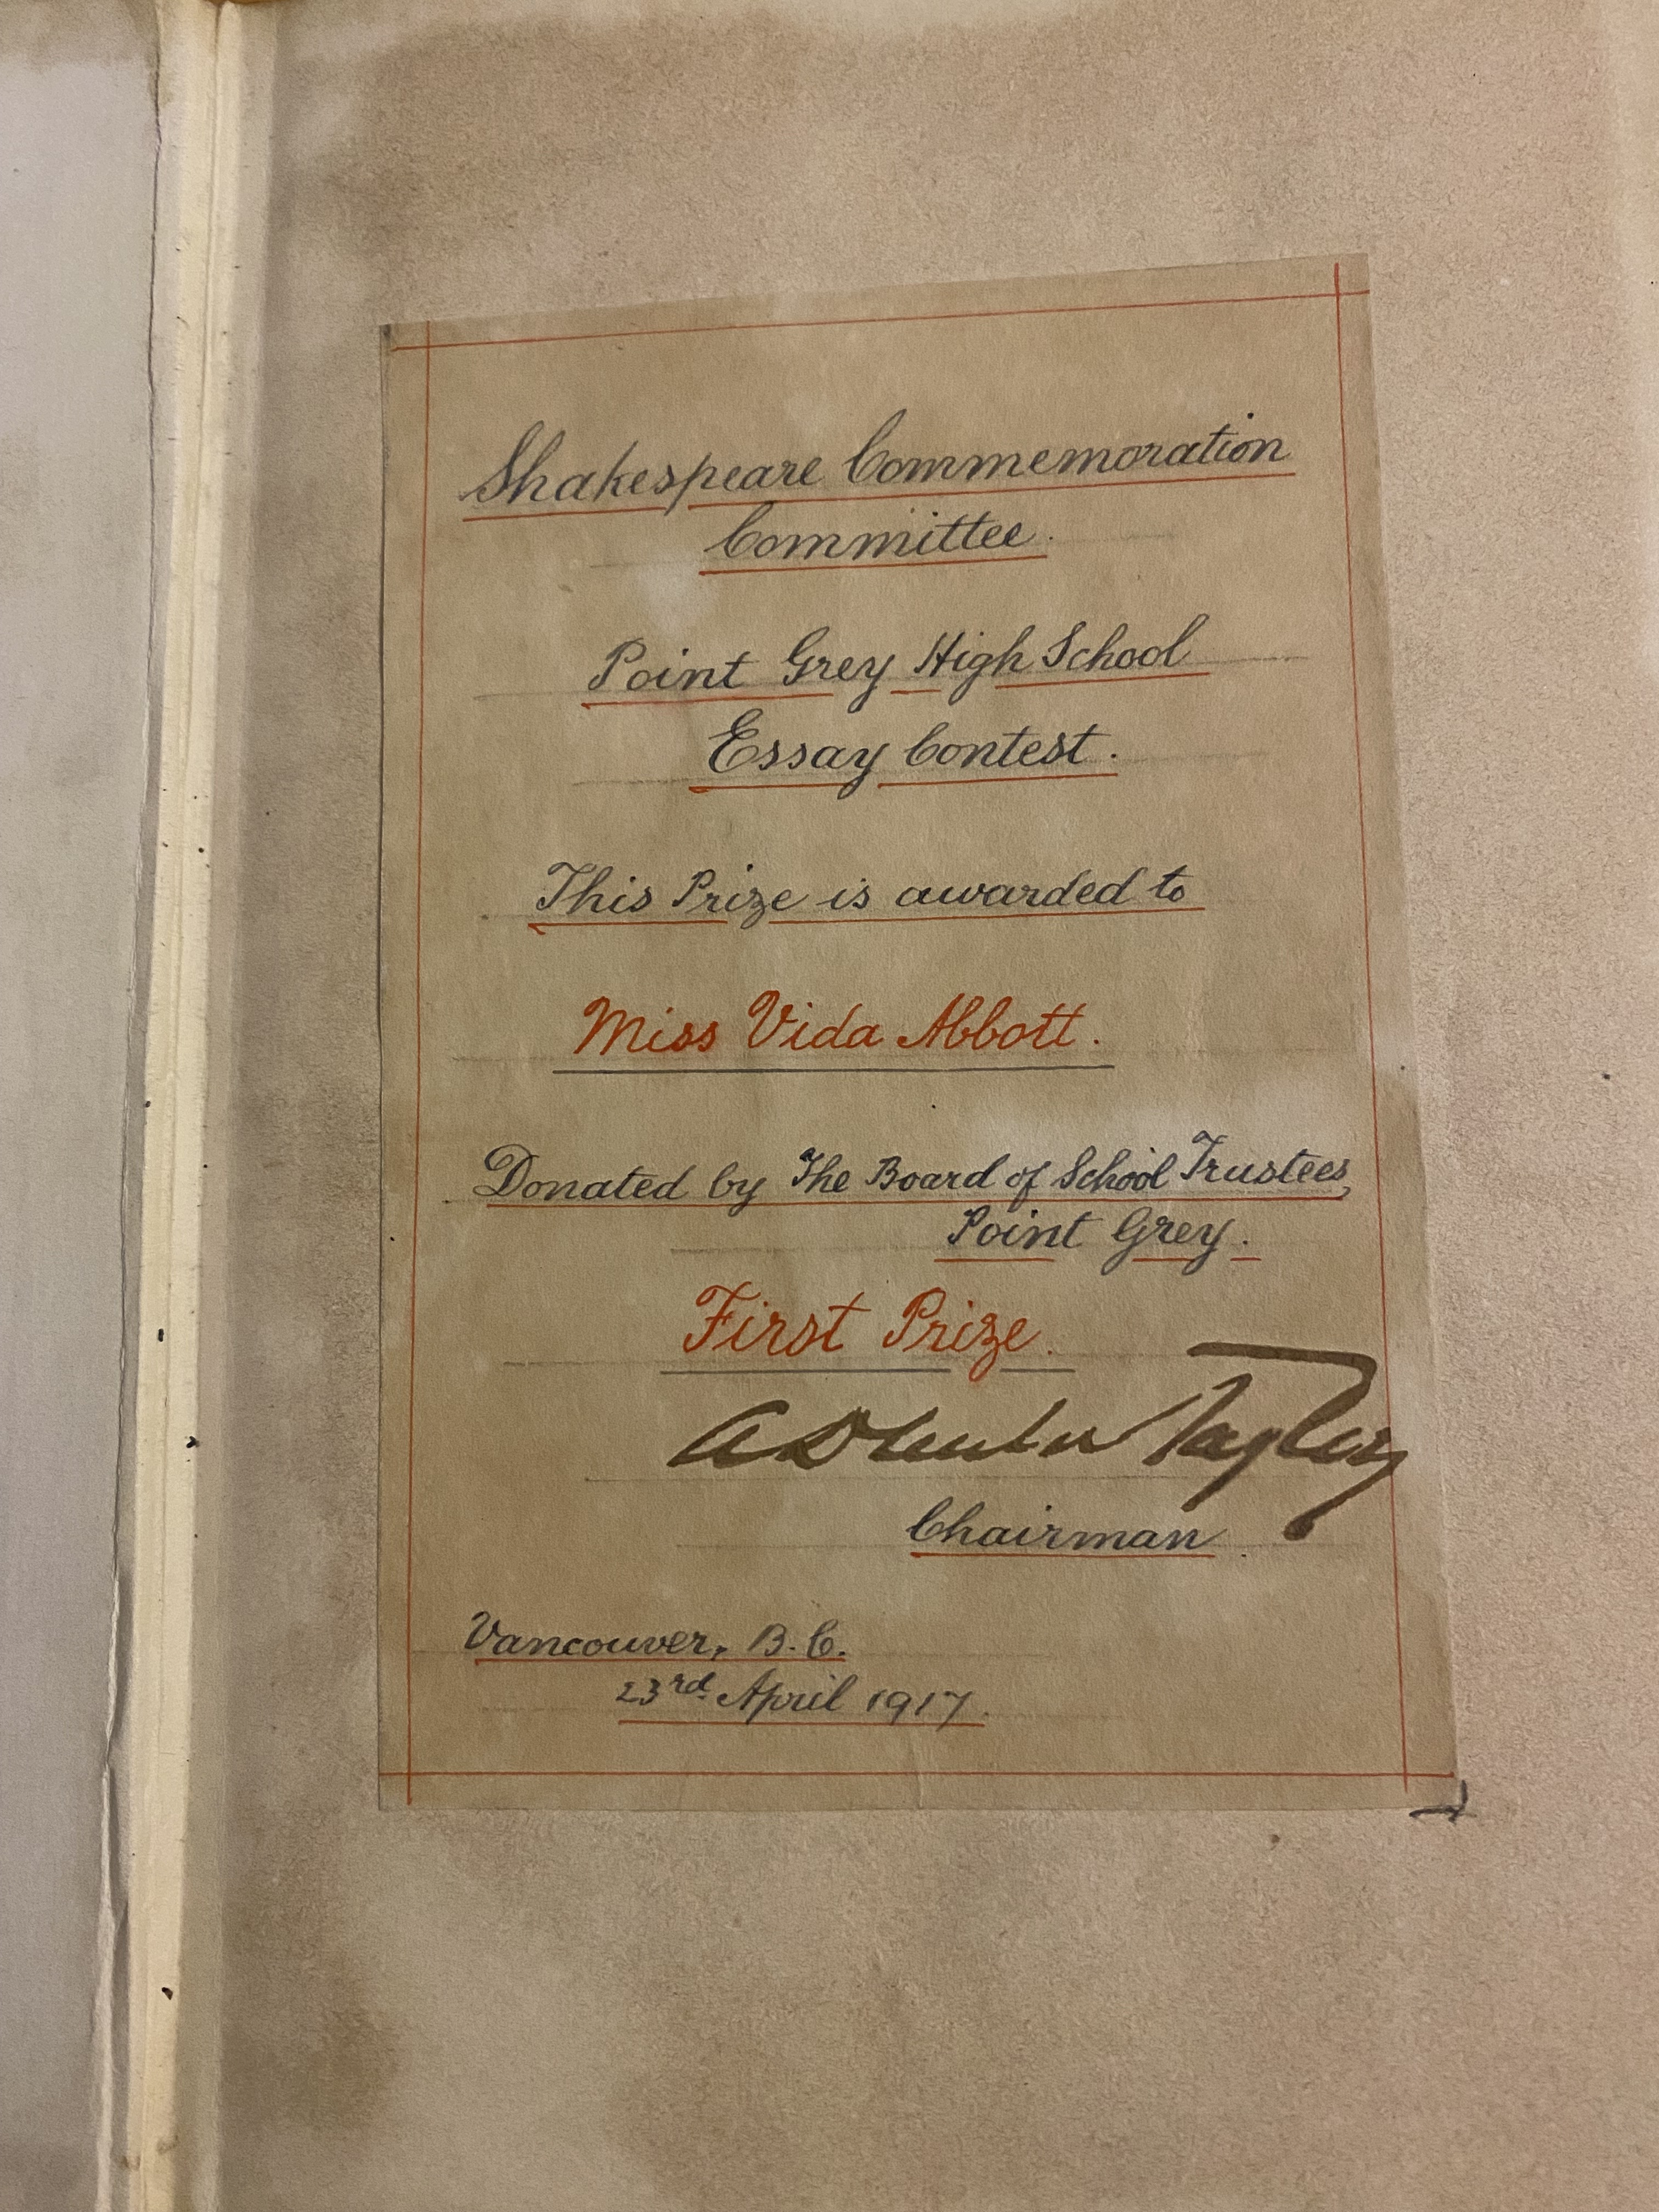 Shakespeare Commemoration
Committee.
Point Grey High School
Essay Contest.
This Prize is awarded to
Miss Vida Abbott.
Donated by The Board of School Trustees,
Point Grey.
First Prize.
Taylor
Chairman.
Vancouver, B.C.
23rd. April 1917.